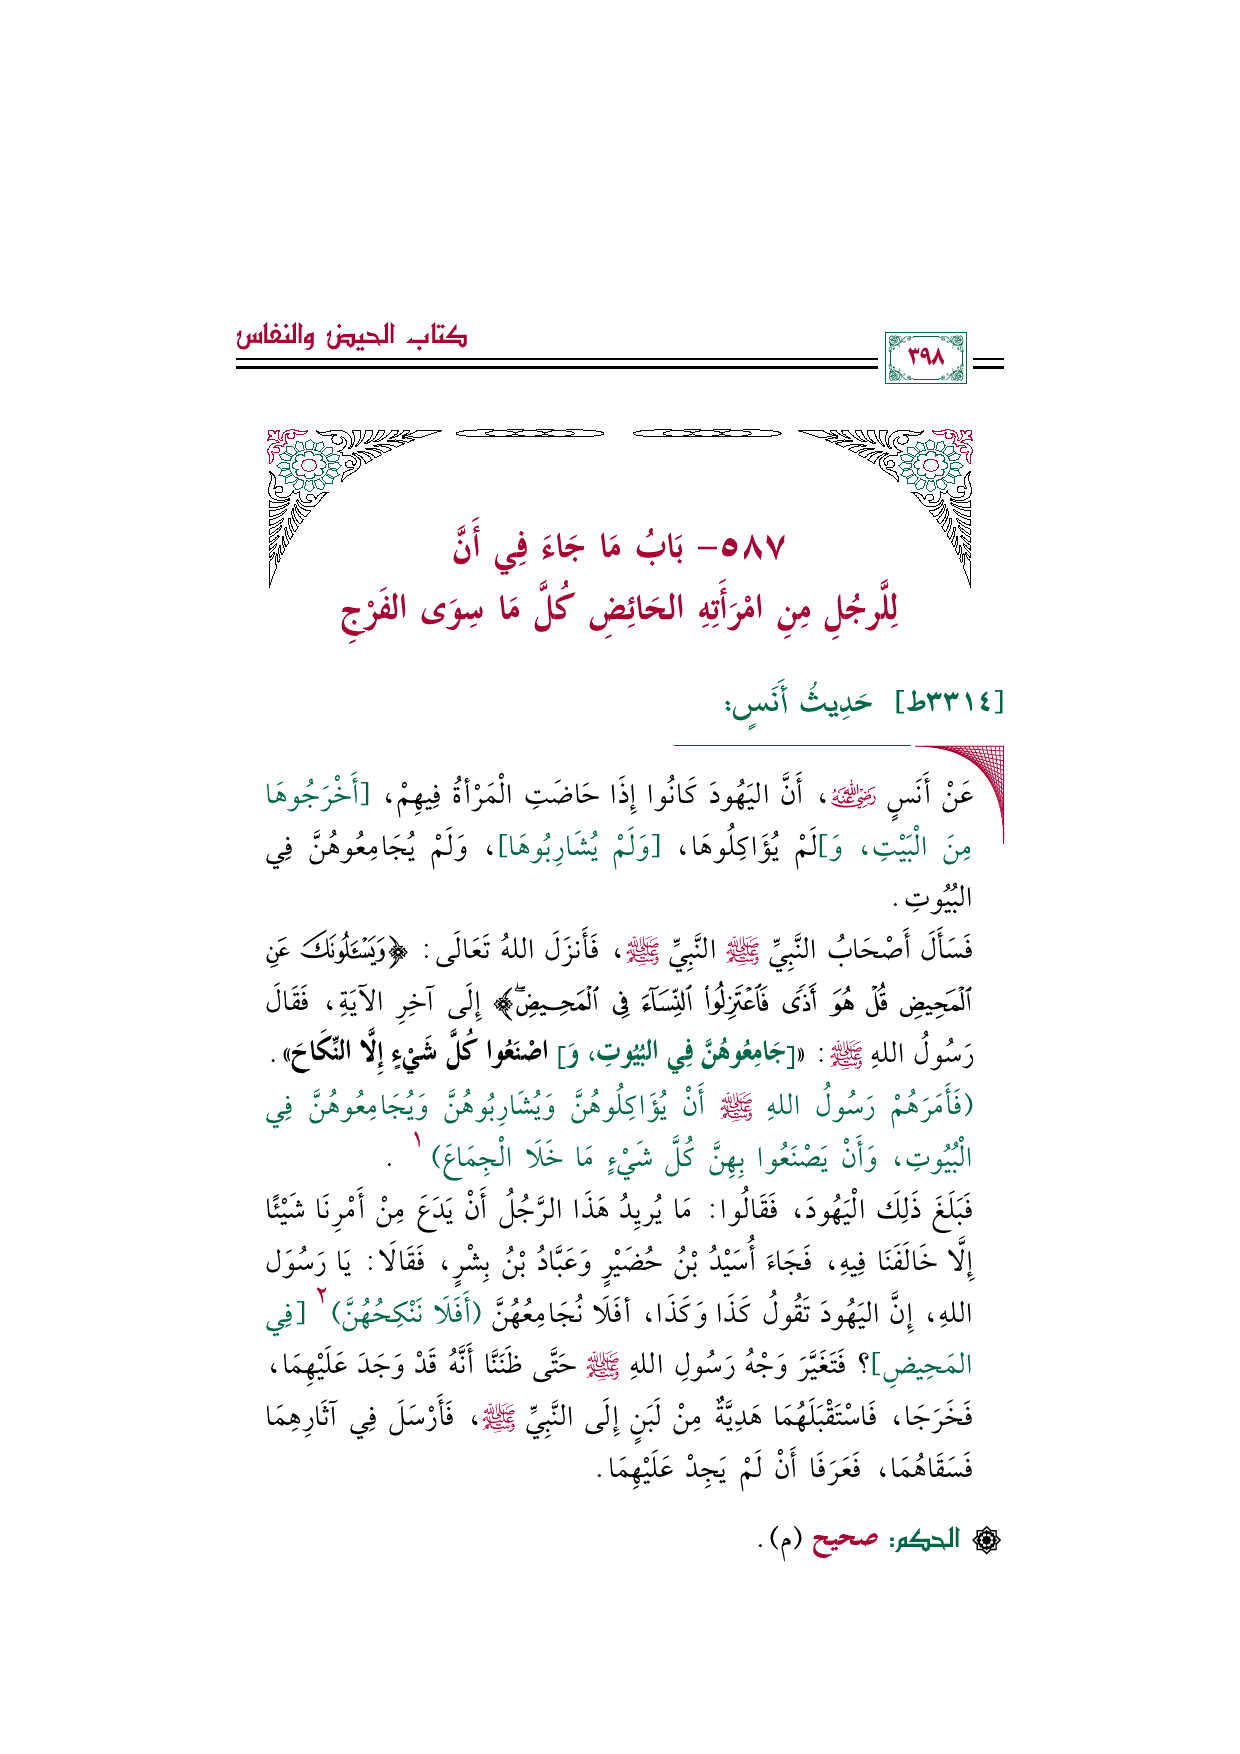 كتاب الحيض والنفاس
٣٩٨
٥٨٧- بَابُ مَا جَاءَ فِي أَنَّ
لِلَّرجُلِ مِنِ امْرَأَتِهِ الحَائِضِ كُلَّ مَا سِوَى الفَرْجِ
[٣٣١٤ط] حَدِيثُ أَنَسٍ:
عَنْ أَنَسٍ رضي الله عنه، أَنَّ اليَهُودَ كَانُوا إِذَا حَاضَتِ الْمَرْأةُ فِيهِمْ، [أَخْرَجُوهَا
مِنَ الْبَيْتِ، وَ]لَمْ يُؤَاكِلُوهَا، [وَلَمْ يُشَارِبُوهَا]، وَلَمْ يُجَامِعُوهُنَّ فِي
البُيُوتِ.
فَسَأَلَ أَصْحَابُ النَّبِيِّ ﷺ النَّبِيِّ ﷺ، فَأَنزَلَ اللهُ تَعَالَى: ﴿وَيَسْـَٔلُونَكَ عَنِ
ٱلْمَحِيضِ قُلْ هُوَ أَذًى فَٱعْتَزِلُوا۟ ٱلنِّسَآءَ فِى ٱلْمَحِيضِۖ﴾ إِلَى آخِرِ الآيَةِ، فَقَالَ
رَسُولُ اللهِ ﷺ: «[جَامِعُوهُنَّ فِي البُيُوتِ، وَ] اصْنَعُوا كُلَّ شَيْءٍ إِلَّا النِّكَاحَ».
(فَأَمَرَهُمْ رَسُولُ اللهِ ﷺ أَنْ يُؤَاكِلُوهُنَّ وَيُشَارِبُوهُنَّ وَيُجَامِعُوهُنَّ فِي
الْبُيُوتِ، وَأَنْ يَصْنَعُوا بِهِنَّ كُلَّ شَيْءٍ مَا خَلَا الْجِمَاعَ) ١ .
فَبَلَغَ ذَلِكَ الْيَهُودَ، فَقَالُوا: مَا يُرِيدُ هَذَا الرَّجُلُ أَنْ يَدَعَ مِنْ أَمْرِنَا شَيْئًا
إِلَّا خَالَفَنَا فِيهِ، فَجَاءَ أُسَيْدُ بْنُ حُضَيْرٍ وَعَبَّادُ بْنُ بِشْرٍ، فَقَالَا: يَا رَسُوَل
اللهِ، إِنَّ اليَهُودَ تَقُولُ كَذَا وَكَذَا، أفَلَا نُجَامِعُهُنَّ (أَفَلَا نَنْكِحُهُنَّ) ٢ [فِي
المَحِيضِ]؟ فَتَغَيَّرَ وَجْهُ رَسُولِ اللهِ ﷺ حَتَّى ظَنَنَّا أَنَّهُ قَدْ وَجَدَ عَلَيْهِمَا،
فَخَرَجَا، فَاسْتَقْبَلَهُمَا هَدِيَّةٌ مِنْ لَبَنٍ إِلَى النَّبِيِّ ﷺ، فَأَرْسَلَ فِي آثَارِهِمَا
فَسَقَاهُمَا، فَعَرَفَا أَنْ لَمْ يَجِدْ عَلَيْهِمَا.
الحكم: صحيح (م).